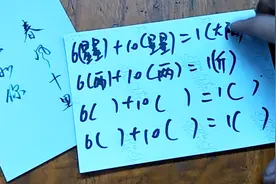 春风十里
如你
6(星星)+10(星星)=1(
6(两)+10(两)=1(斤)
6( )+10( )=1( )
6( )+10( )=1( )